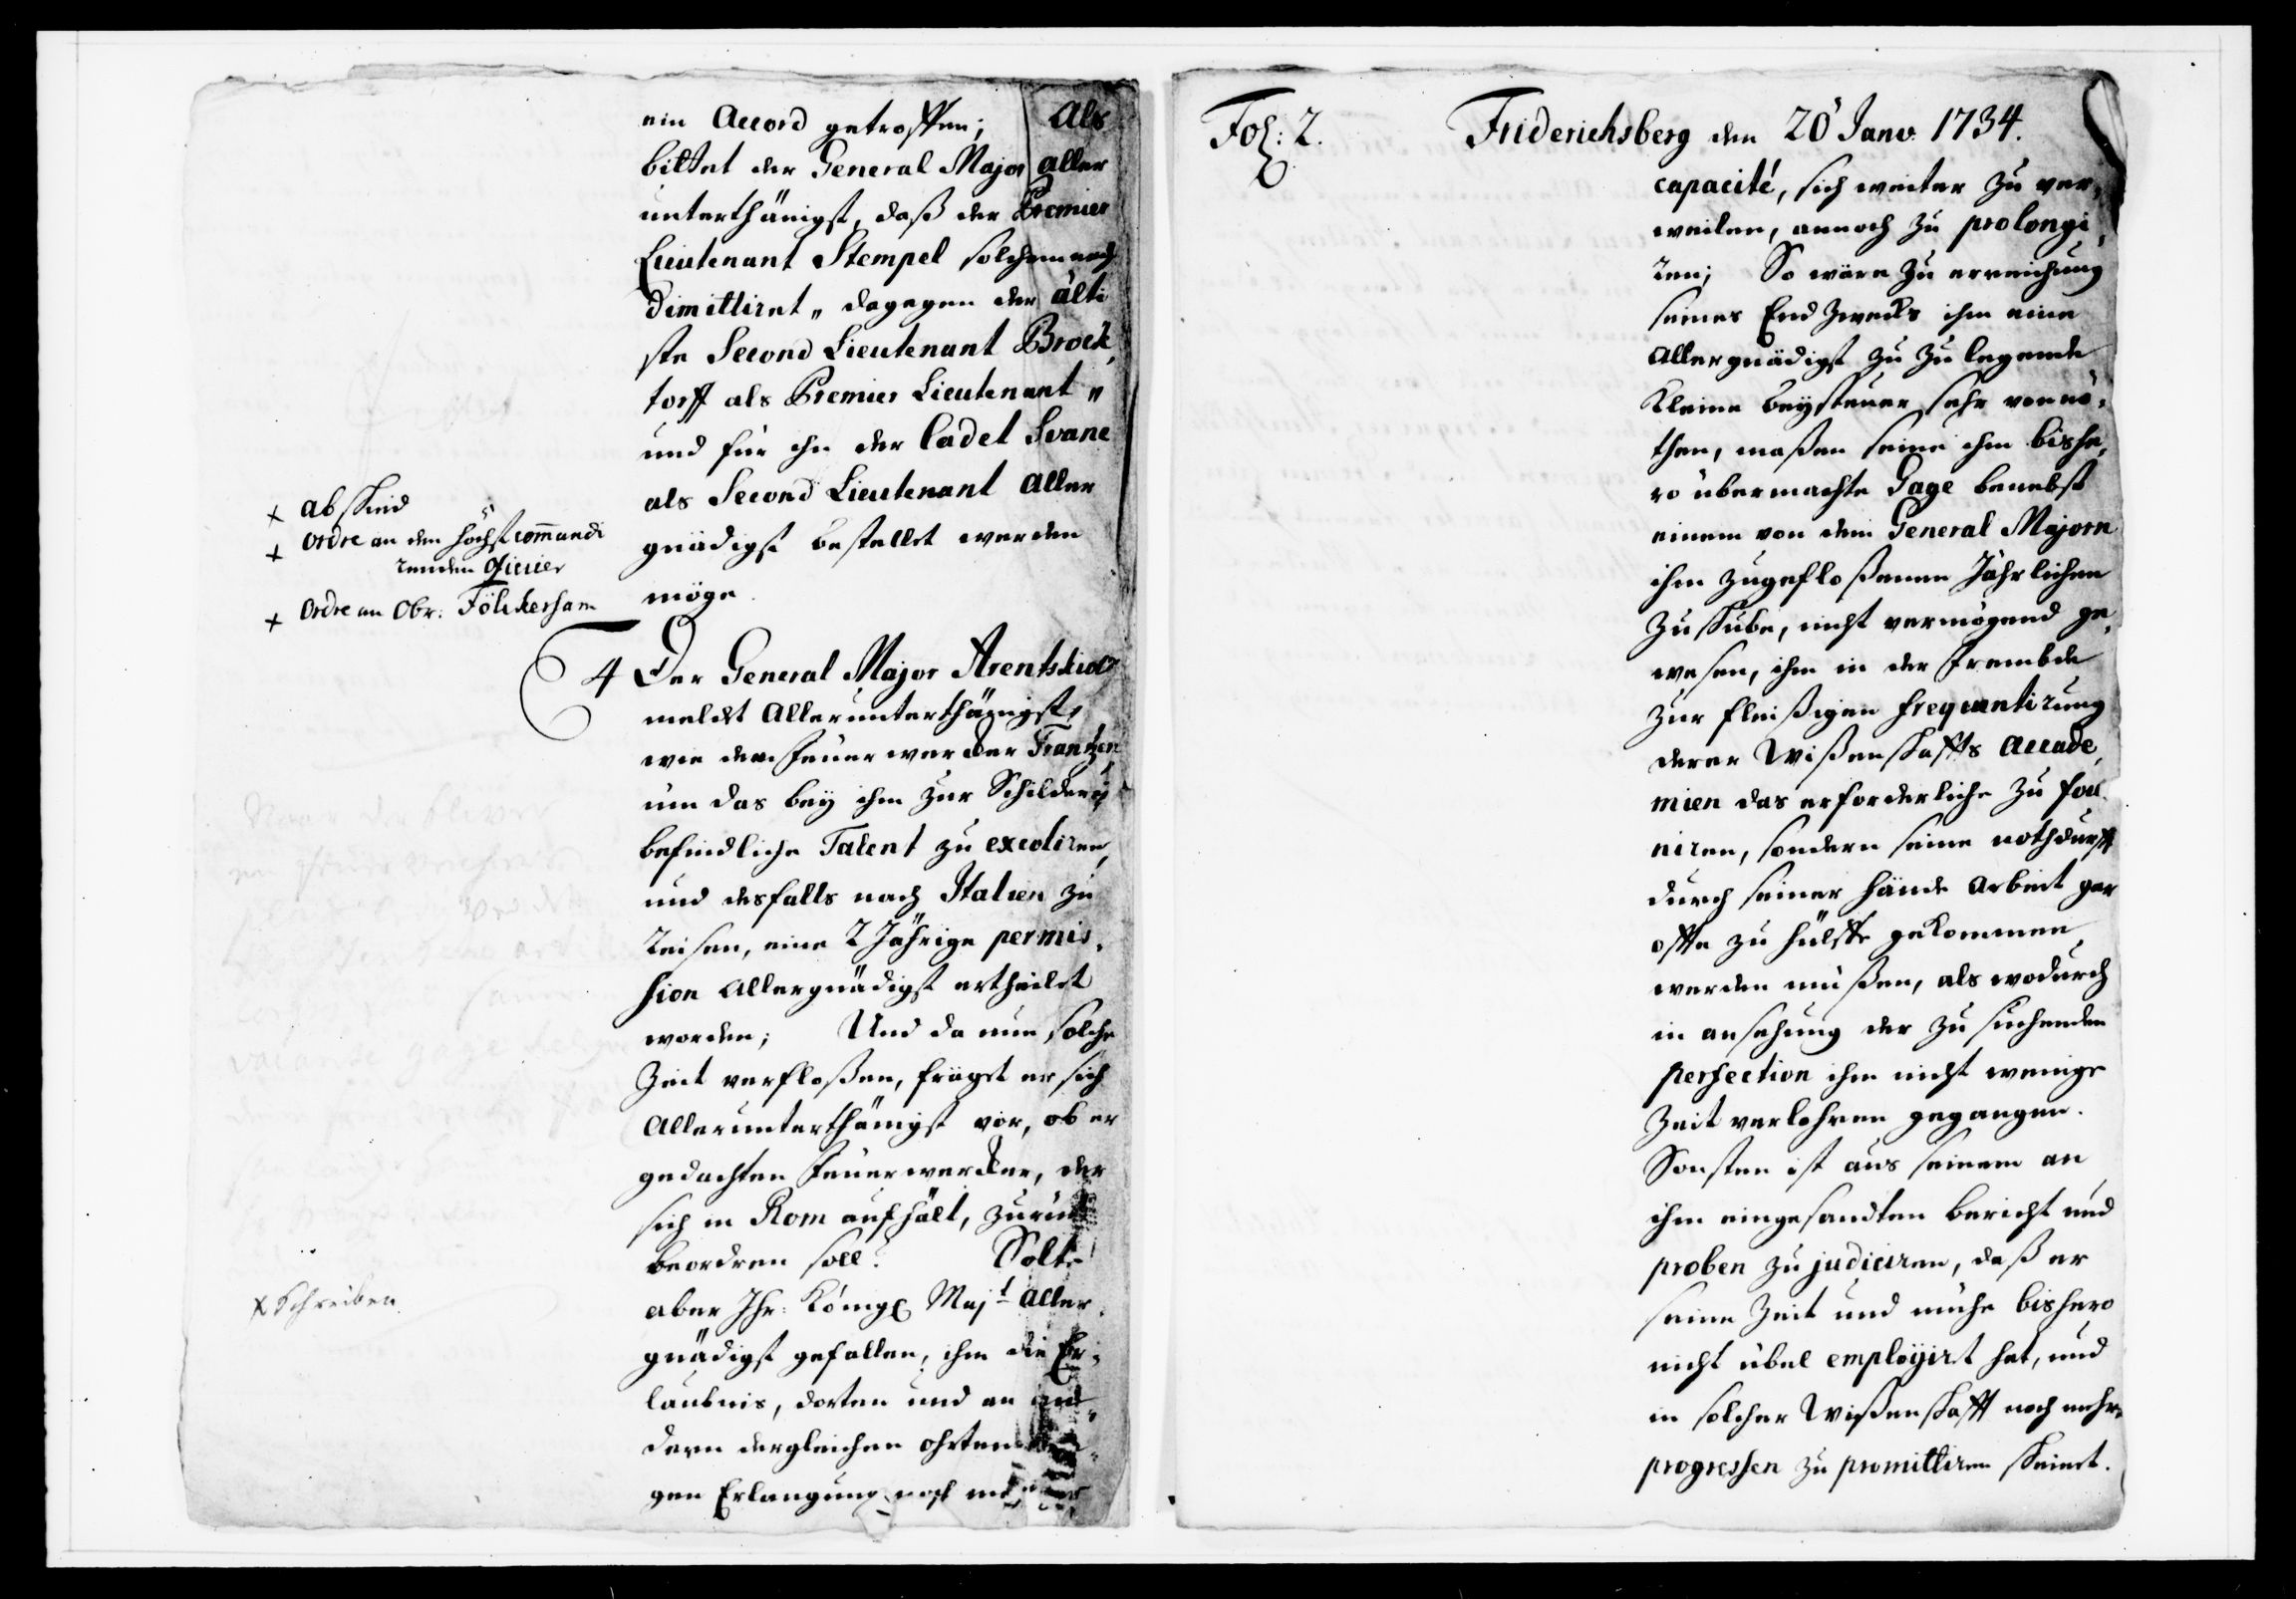 ein Accord getroffen; Als
bittet der General Major Aller
unterthänigst, daß der Premier
Lieutenant Stempel solchemnach
dimittiret „ dagegen der älte
ste Second Lieutenant Brock,
torff als Premier Lieutenant „
und für ihn der Cadet Svane
als Second Lieutenant Aller
gnädigst bestellet werden
möge.
x Abscheid
x Ordre an den höchst com̄andi
renden Officier
x Ordre an Obr: Fölckersham
4 Der General Major Arentskiold
meldet Allerunterthänigst,
wie dem Feuerwercker Frantzen
um das bey ihm zur Schilderey
befindliche Talent zu excoliren,
und desfalls nach Italien zu
reisen, eine 2 Jährige permis,
sion Allergnädigst ertheilet
worden; Und da nun solche
Zeit verfloßen, fräget er sich
Allerunterthänigst vor, ob er
gedachten Feuerwercker, der
sich in Rom aufhält, zurück
beordren soll? Solte
aber Ihr: Königl Majt Aller,
gnädigst gefallen, ihm die Er,
laubnis, dorten und an an„
dern dergleichen ohrten
gen Erlangung noch
x Schreiben.
Fol: 2. Friderichsberg den 20 Janv. 1734.
capacité, sich weiter zu ver,
weilen, annoch zu prolongi,
ren; So wäre zu erreichung
seines End Zwecks ihm eine
Allergnädigst zu zu legende
Kleine beysteuer sehr vonnö,
then, maßen seine ihm bishe,
ro übermachte Gage benebst
einem von dem General Majorn
ihm zugefloßenen Jährlichen
Zuschube, nicht vermögend ge,
wesen, ihm in der Frembde
zur fleißigen frequentirung
derer Wißenschaffts Accade,
mien das erforderliche zu four
niren, sondern seine nothdurfft
durch seiner hände Arbeit gar
offte zu hülffe gekommen
werden müßen, als wodurch
in ansehung der zu suchenden
perfection ihm nicht wenige
Zeit verlohren gegangen.
Sonsten ist aus seinem an
ihm eingesandten bericht und
proben zu judiciren, daß er
seine Zeit und mühe bishero
nicht übel employiret hat, und
in solcher Wißenschafft noch mehre
progressen zu promittiren scheinet.